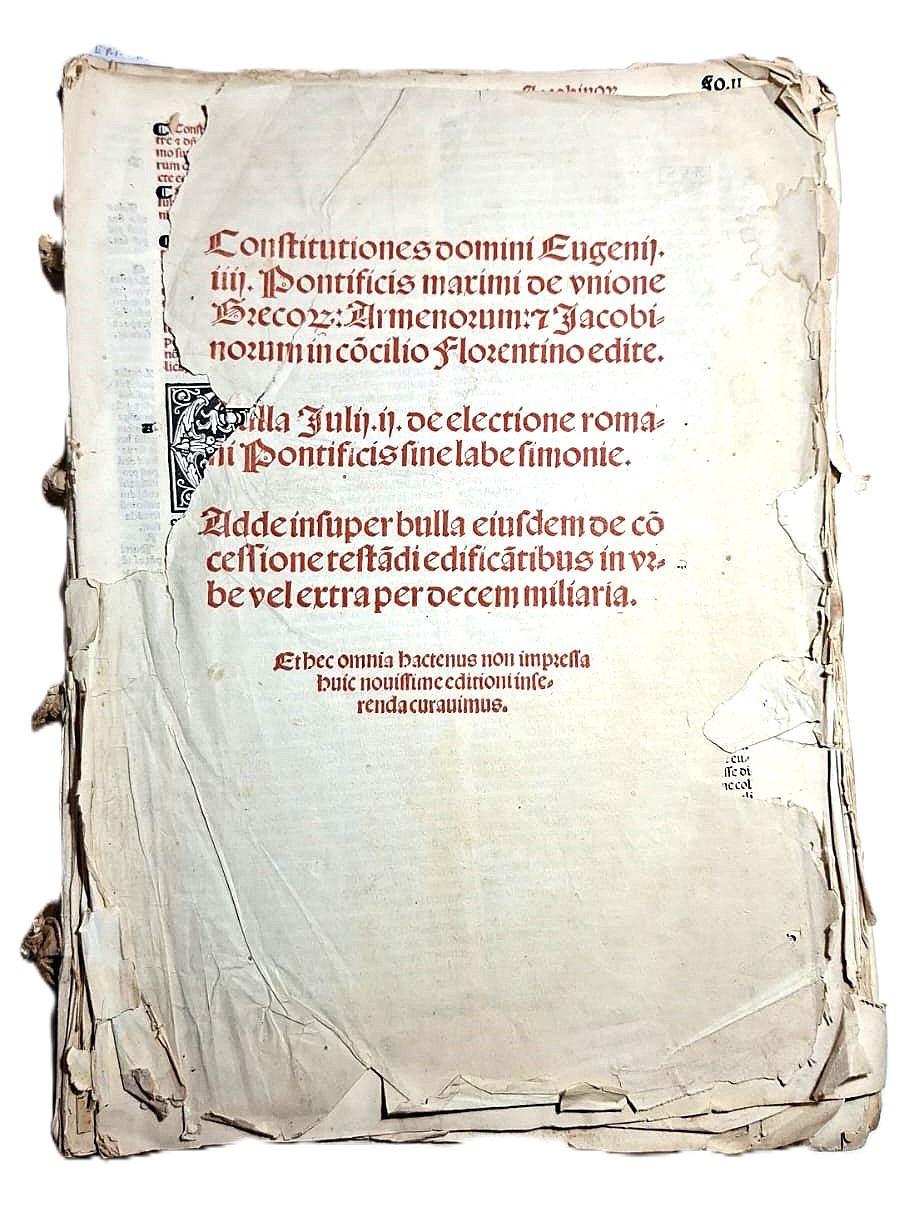 FO. II
Constitutiones domini Eugenij.
iiij. Pontificis maximi de vnione
Grecoꝝ: Armenorum: ⁊ Jacobi⸗
norum in cōcilio Florentino edite.
Julij. ij. de electione roma⸗
Pontificis sine labe simonie.
Adde insuper bulla eiusdem de cō
cessione testādi edificātibus in vr⸗
be vel extra per decem miliaria.
Et hec omnia hactenus non impressa
huic nouissime editioni inse⸗
renda curauimus.